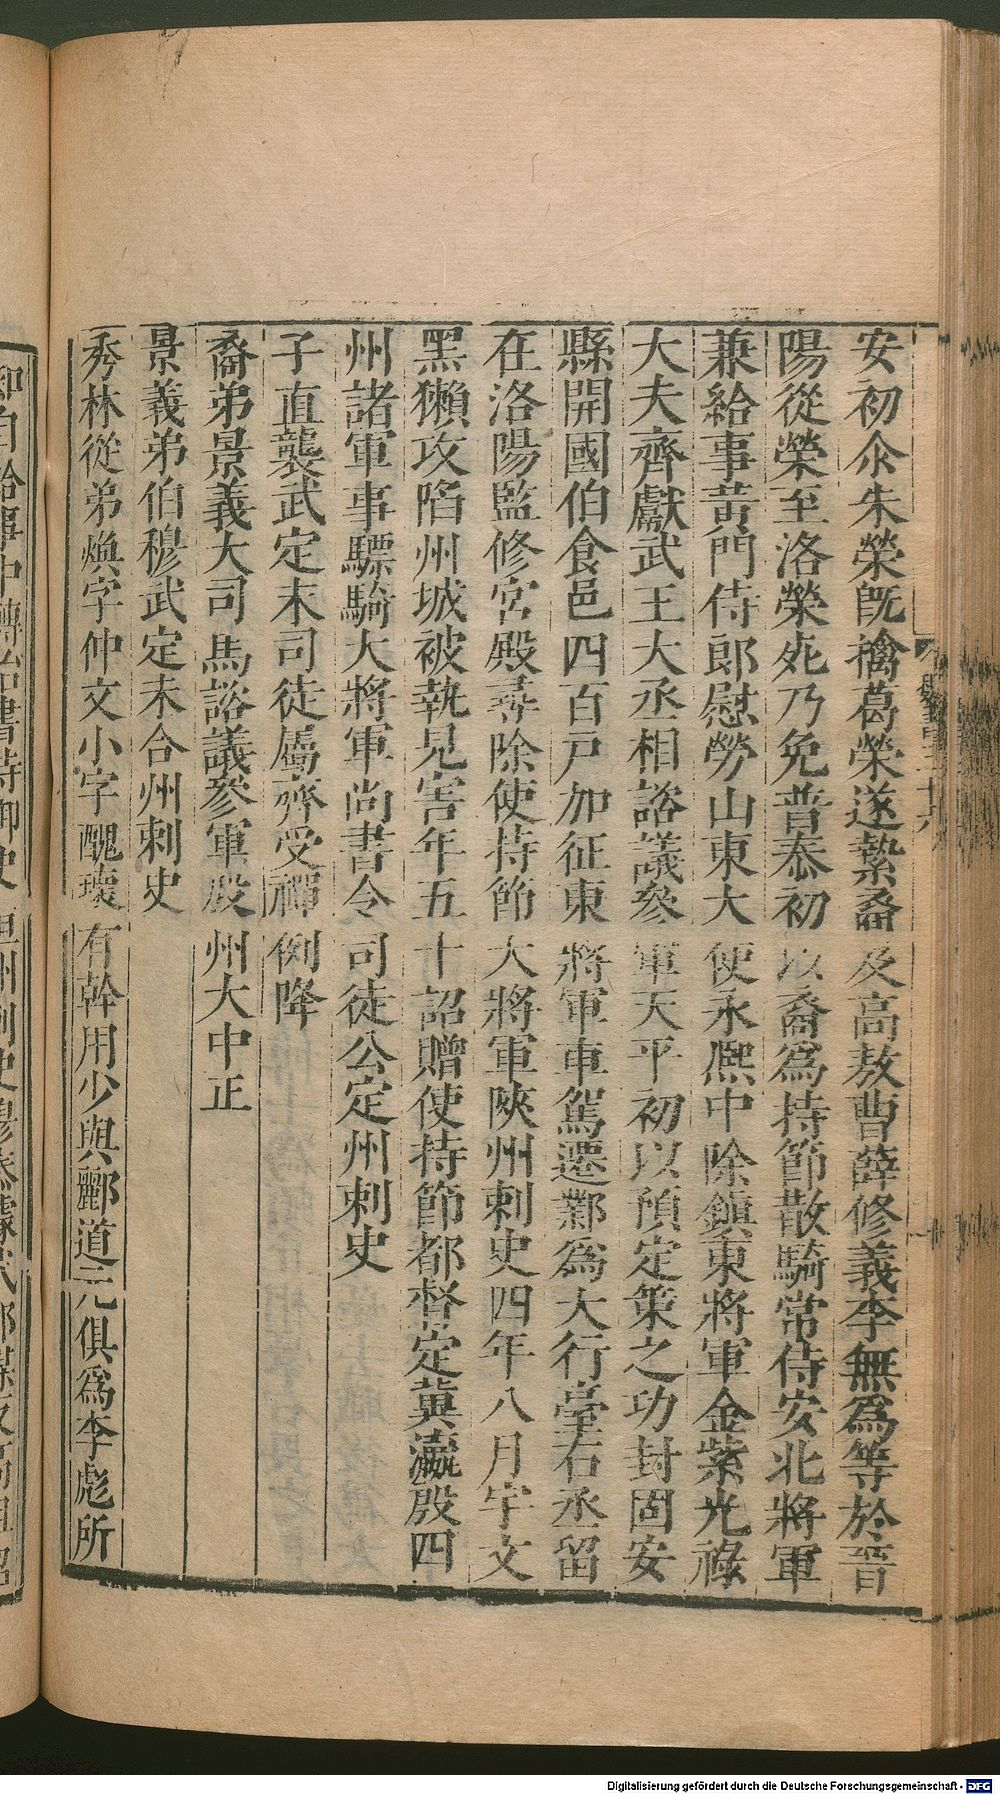 安初尒朱榮旣擒葛榮遂縶裔及高敖曹薛修義李無爲等於晋
陽從榮至洛榮死乃免普泰初以裔爲持節散騎常侍安北將軍
兼給事黃門侍郎慰勞山東大使永熙中除鎮東將軍金紫光祿
大夫齊獻武王大丞相諮議參軍天平初以預定策之功封固安
縣開國伯食邑四百戸加征東將軍車駕遷鄴爲大行臺右丞留
在洛陽監修宮殿尋除使持節大將軍陝州刺史四年八月宇文
黑獺攻陷州城被執見害年五十詔贈使持節都督定冀瀛殷四
州諸軍事驃騎大將軍尚書令司徒公定州刺史
子直襲武定末司徒屬齊受禪例降
裔弟景義大司馬諮議參軍殷州大中正
景義弟伯穆武定末合州刺史
秀林從弟煥字仲文小字醜瓌有幹用少與酈道元俱爲李彪所
Digitalisierung gefördert durch die Deutsche Forschungsgemeinschaft - DFG